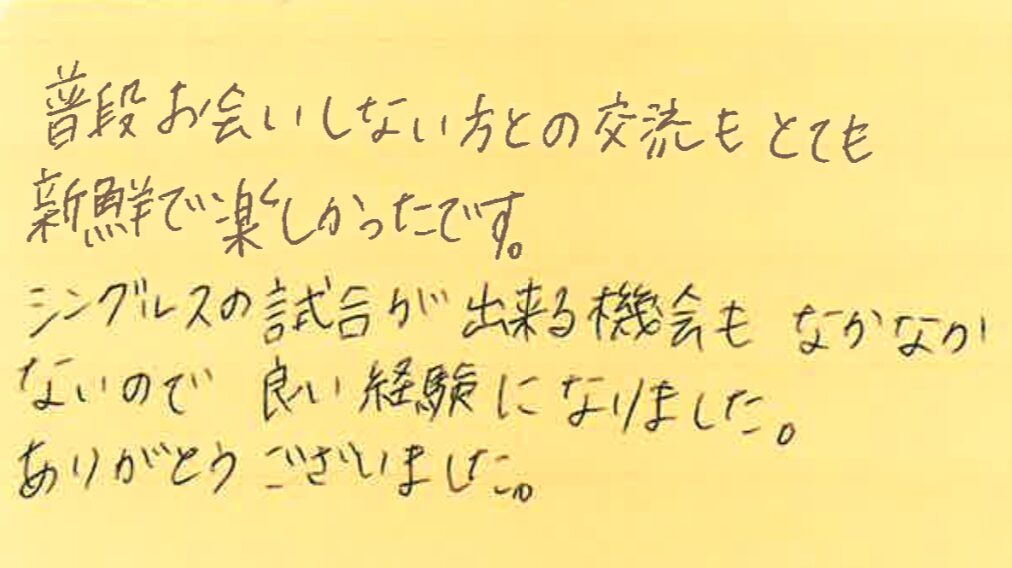 普段お会いしない方との交流もとても
新鮮で楽しかったです。
シングルスの試合が出来る機会もなかなか
ないので良い経験になりました。
ありがとうございました。